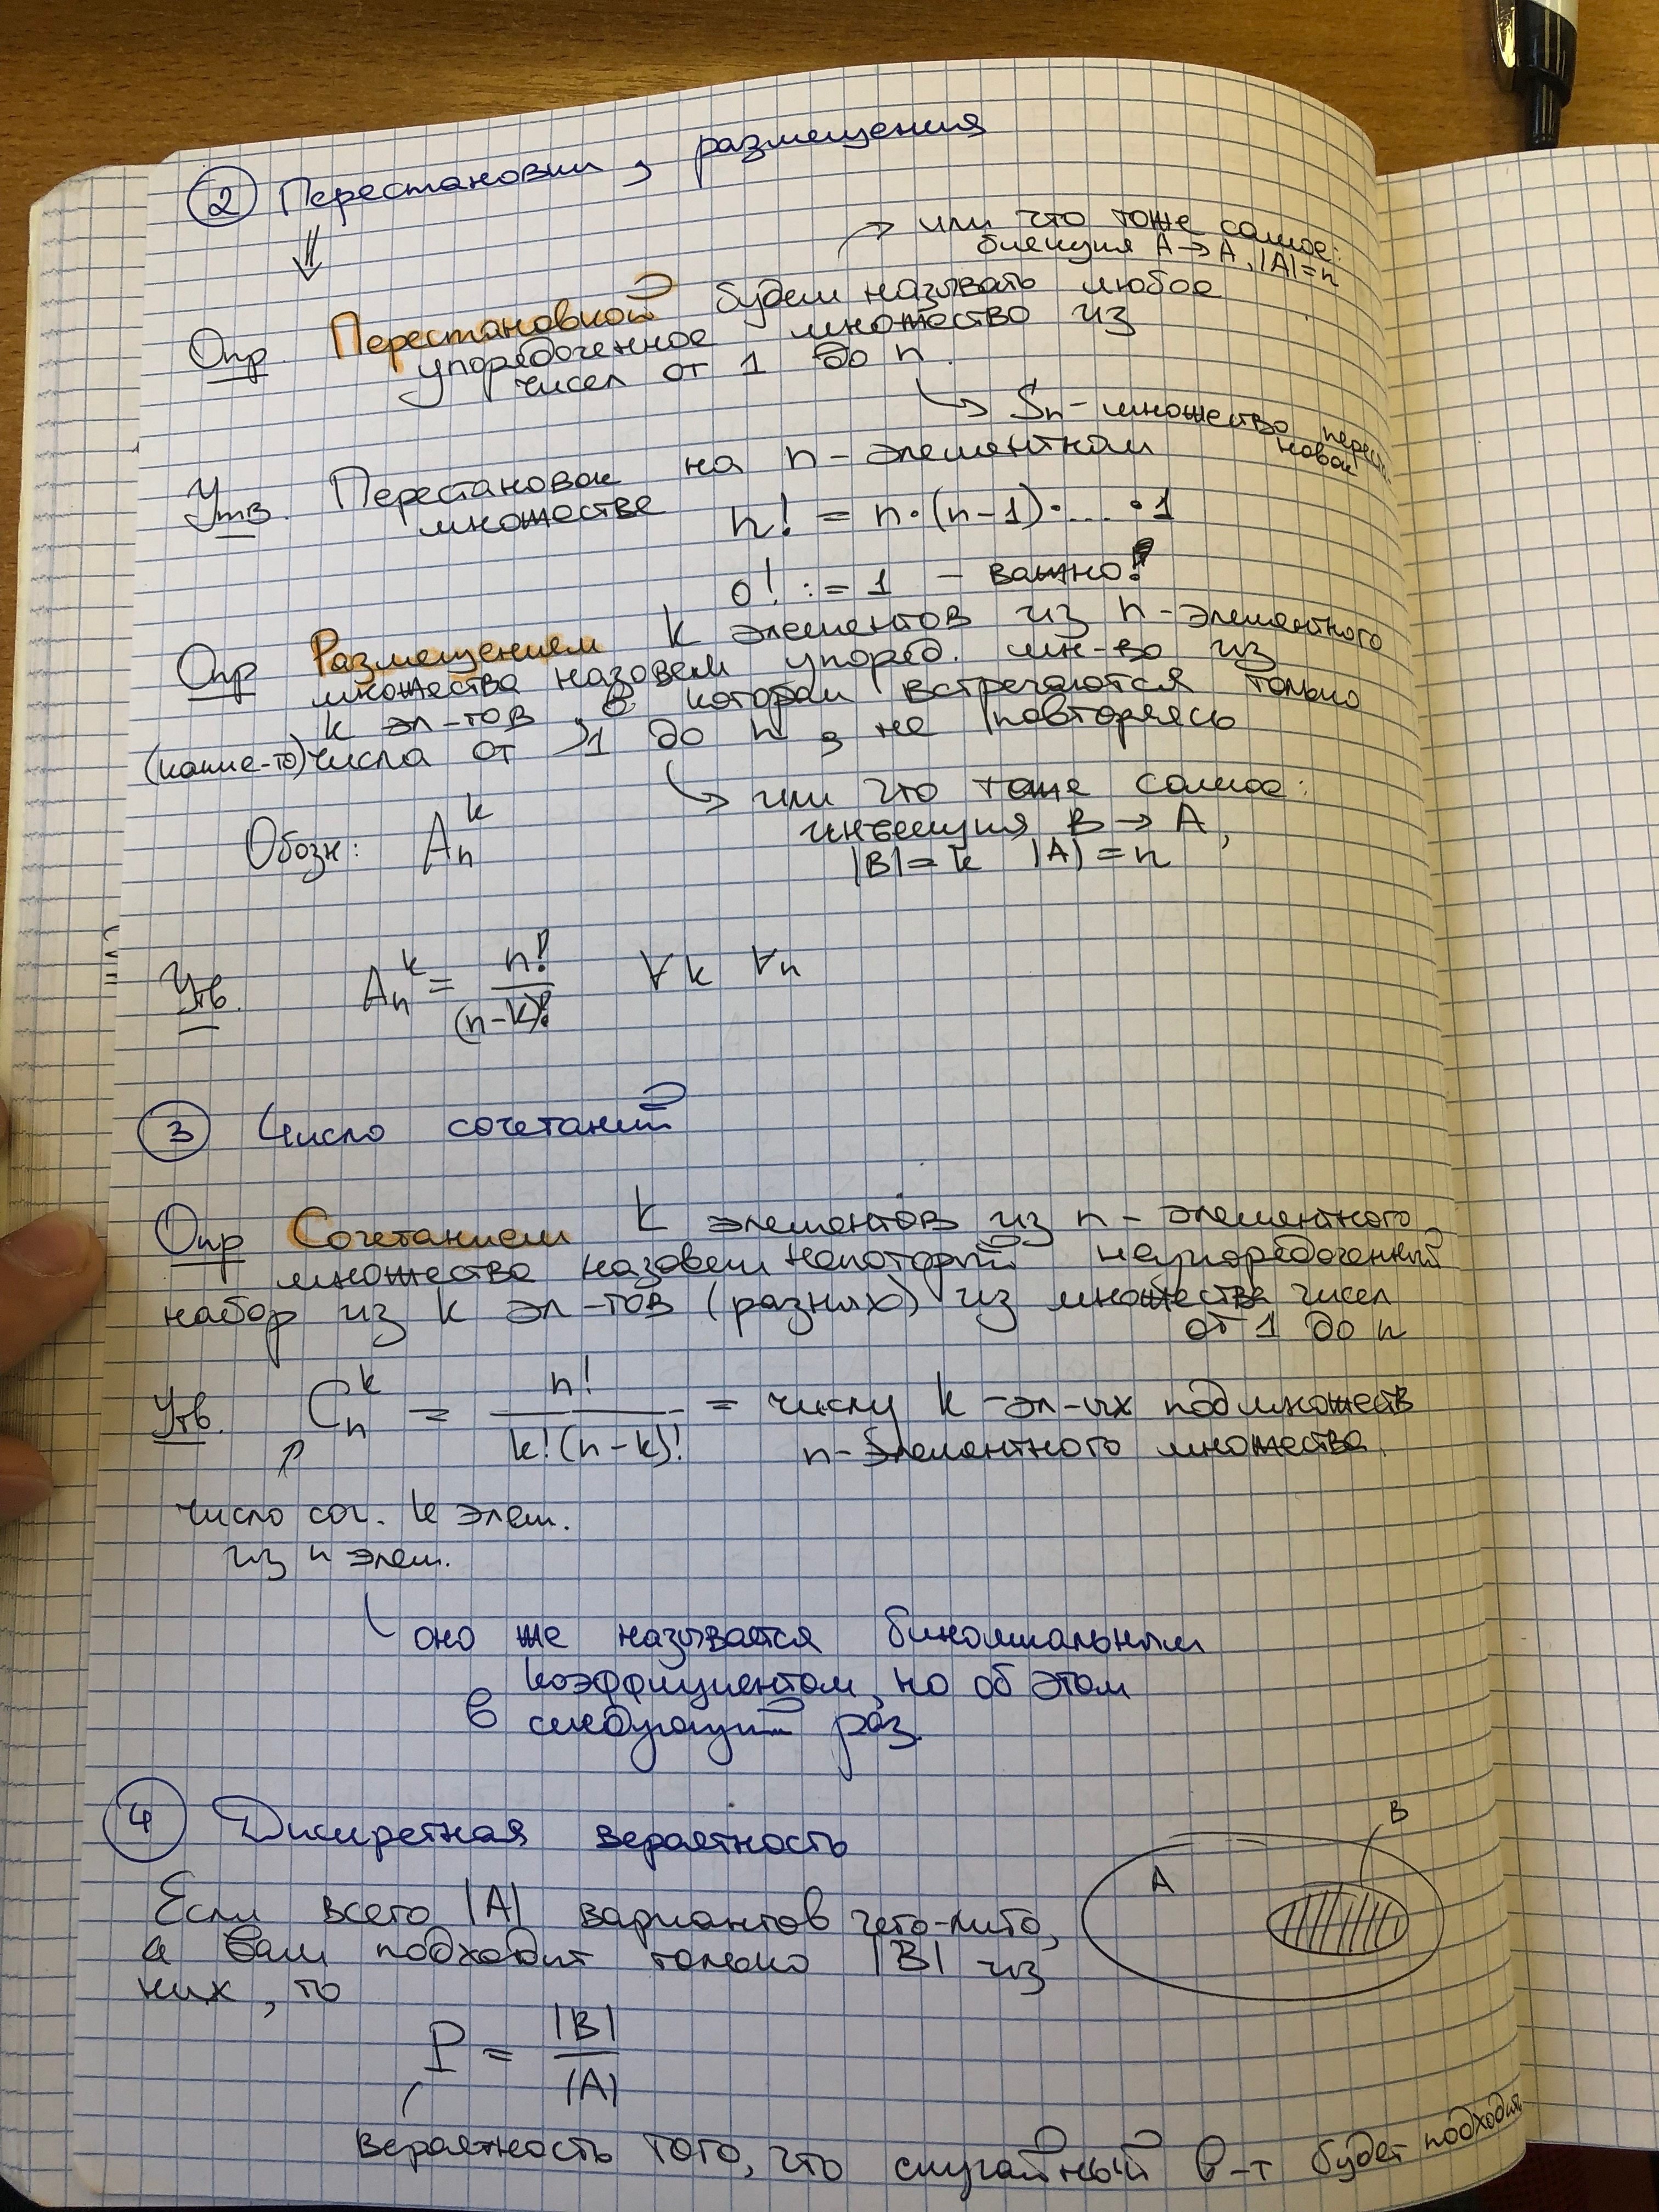 ② Перестановки, размещения
→ или что тоже самое:
биекция A→A, |A|=n
Опр. Перестановкой будем называть любое
упорядоченное множество из
чисел от 1 до n.
→ Sₙ - множество перест
новок
Утв. Перестановок на n-элементном
множестве n! = n·(n-1)·...·1
0! := 1 - важно!
Опр Размещением k элементов из n-элементного
множества назовем упоряд. мн-во из
k эл-тов, в котором встречаются только
(какие-то) числа от 1 до n, не повторяясь
→ или что тоже самое:
инъекция B → A,
|B|=k |A|=n
Обозн: Aₙᵏ
Утв. Aₙᵏ = n!/(n-k)! ∀k ∀n
③ Число сочетаний
Опр Сочетанием k элементов из n-элементного
множества назовем некоторый неупорядоченный
набор из k эл-тов (разных) из множества чисел
от 1 до n
Утв. Cₙᵏ = n!/(k!(n-k)!) = числу k-эл-ых подмножеств
n-элементного множества.
↑
число соч. k элем.
из n элем.
оно же называется биномиальным
коэффициентом, но об этом
в следующий раз.
④ Дискретная вероятность
B
A
Если всего |A| вариантов чего-либо,
а Вам подходит только |B| из
них, то
P = |B|/|A|
вероятность того, что случайный в-т будет подходит